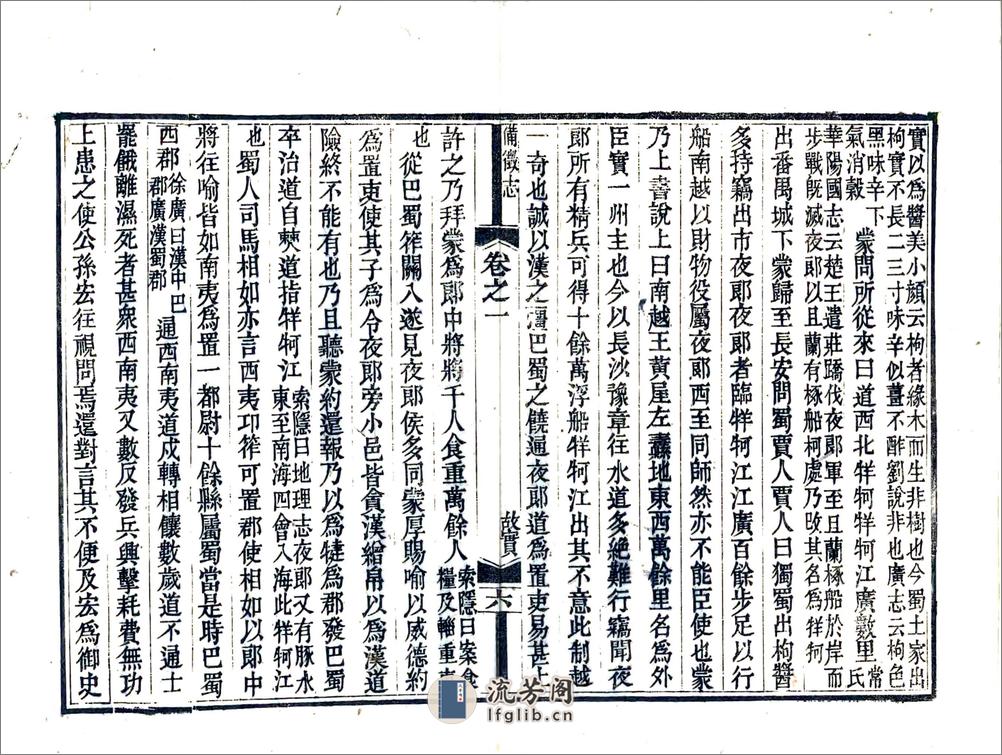 實以爲醬美小顏云枸者緣木而生非樹也今蜀土家出
枸實不長二三寸味辛似薑不酢劉說非也廣志云枸色
黑味辛下
氣消穀
蒙問所從來曰道西北牂牁牂牁江廣數里
常
氏
華陽國志云楚王遣莊蹻伐夜郞軍至且蘭椓船於岸而
步戰旣滅夜郞以且蘭有椓船柯處乃改其名爲牂牁
出番禺城下蒙歸至長安問蜀賈人賈人曰獨蜀出枸醬
多持竊出市夜郞夜郞者臨牂牁江江廣百餘步足以行
船南越以財物役屬夜郞西至同師然亦不能臣使也蒙
乃上書說上曰南越王黃屋左纛地東西萬餘里名爲外
臣實一州主也今以長沙豫章往水道多絶難行竊聞夜
郞所有精兵可得十餘萬浮船牂牁江出其不意此制越
一奇也誠以漢之彊巴蜀之饒通夜郞道爲置吏易甚上
備徵志
卷之一
故實
六
許之乃拜蒙爲郞中將將千人食重萬餘人
索隱曰案食
糧及輜重車
也
從巴蜀筰關入遂見夜郞侯多同蒙厚賜喻以威德約
爲置吏使其子爲令夜郞旁小邑皆貪漢繒帛以爲漢道
險終不能有也乃且聽蒙約還報乃以爲犍爲郡發巴蜀
卒治道自僰道指牂牁江
索隱曰地理志夜郞又有豚水
東至南海四會入海此牂牁江
也
蜀人司馬相如亦言西夷卭筰可置郡使相如以郞中
將往喻皆如南夷爲置一都尉十餘縣屬蜀當是時巴蜀
西郡
徐廣曰漢中巴
郡廣漢蜀郡
通西南夷道戍轉相饟數歲道不通士
罷餓離濕死者甚衆西南夷又數反發兵興擊耗費無功
上患之使公孫宏往視問焉還對言其不便及宏爲御史
流芳阁
lfglib.cn